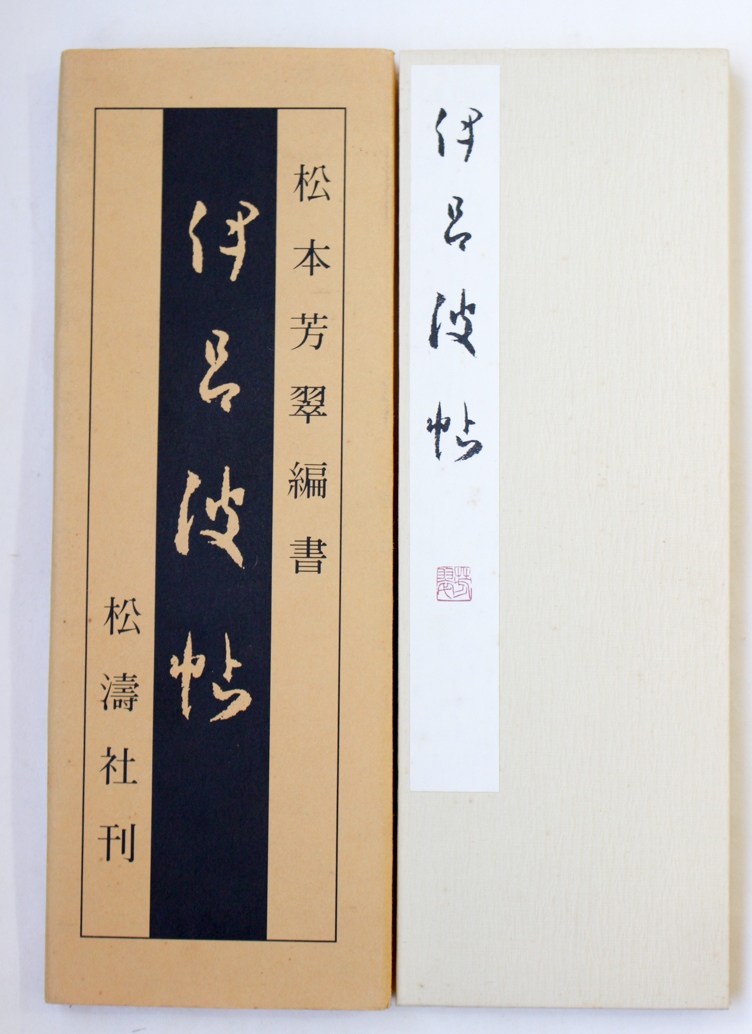 松本芳翠編書
伊呂波帖
松濤社刊
伊呂波帖
芳翠